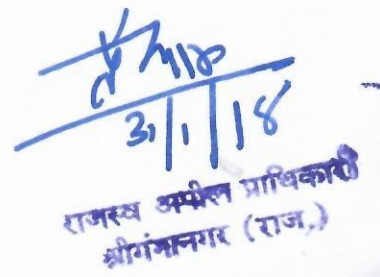 31/1/18
राजस्व अपील प्राधिकारी
श्रीगंगानगर (राज.)